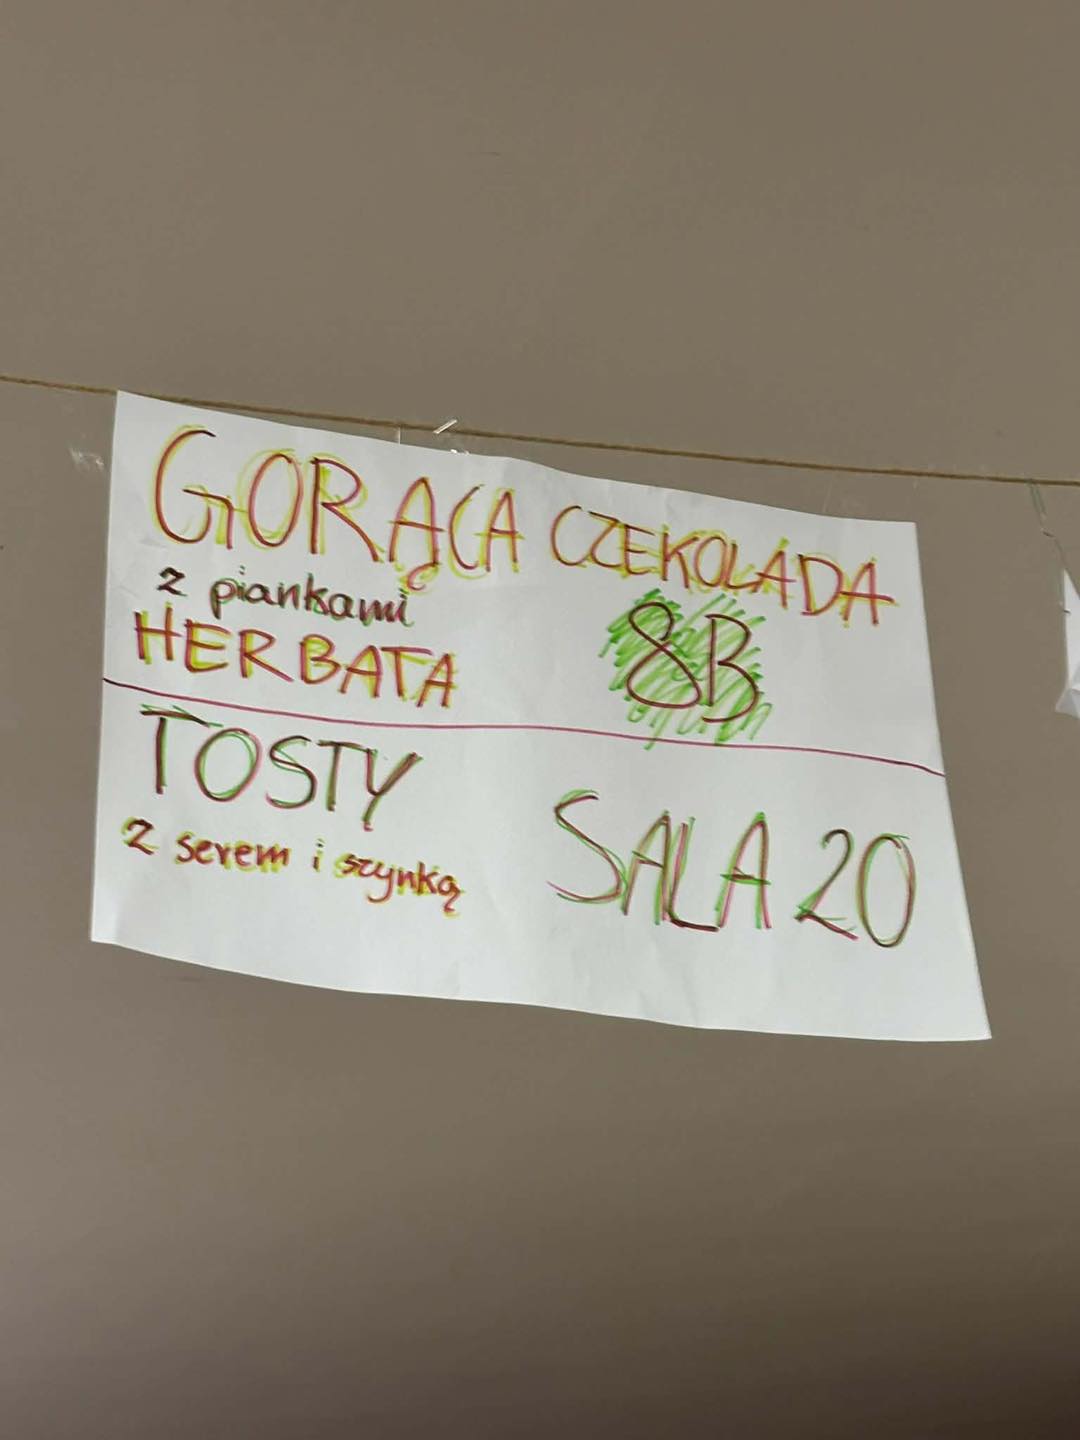 GORĄCA CZEKOLADA
z piankami
HERBATA
8B
TOSTY
z serem i szynką
SALA 20